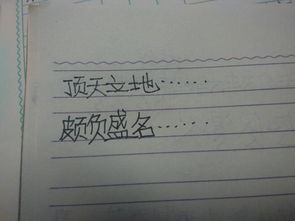 顶天立地……
颇负盛名……